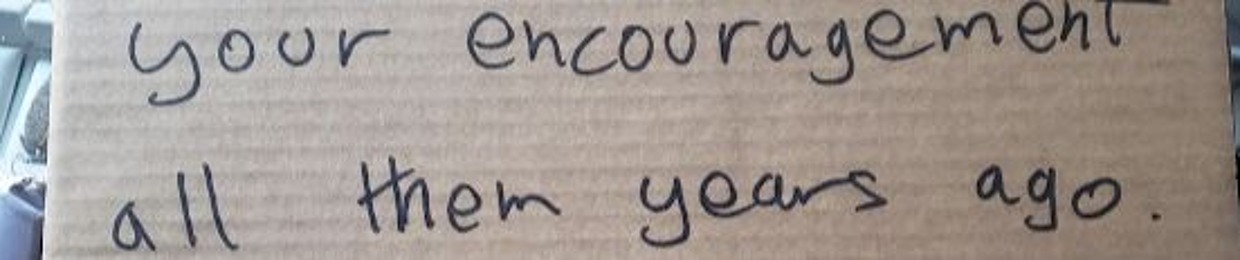 your encouragement
all them years ago.